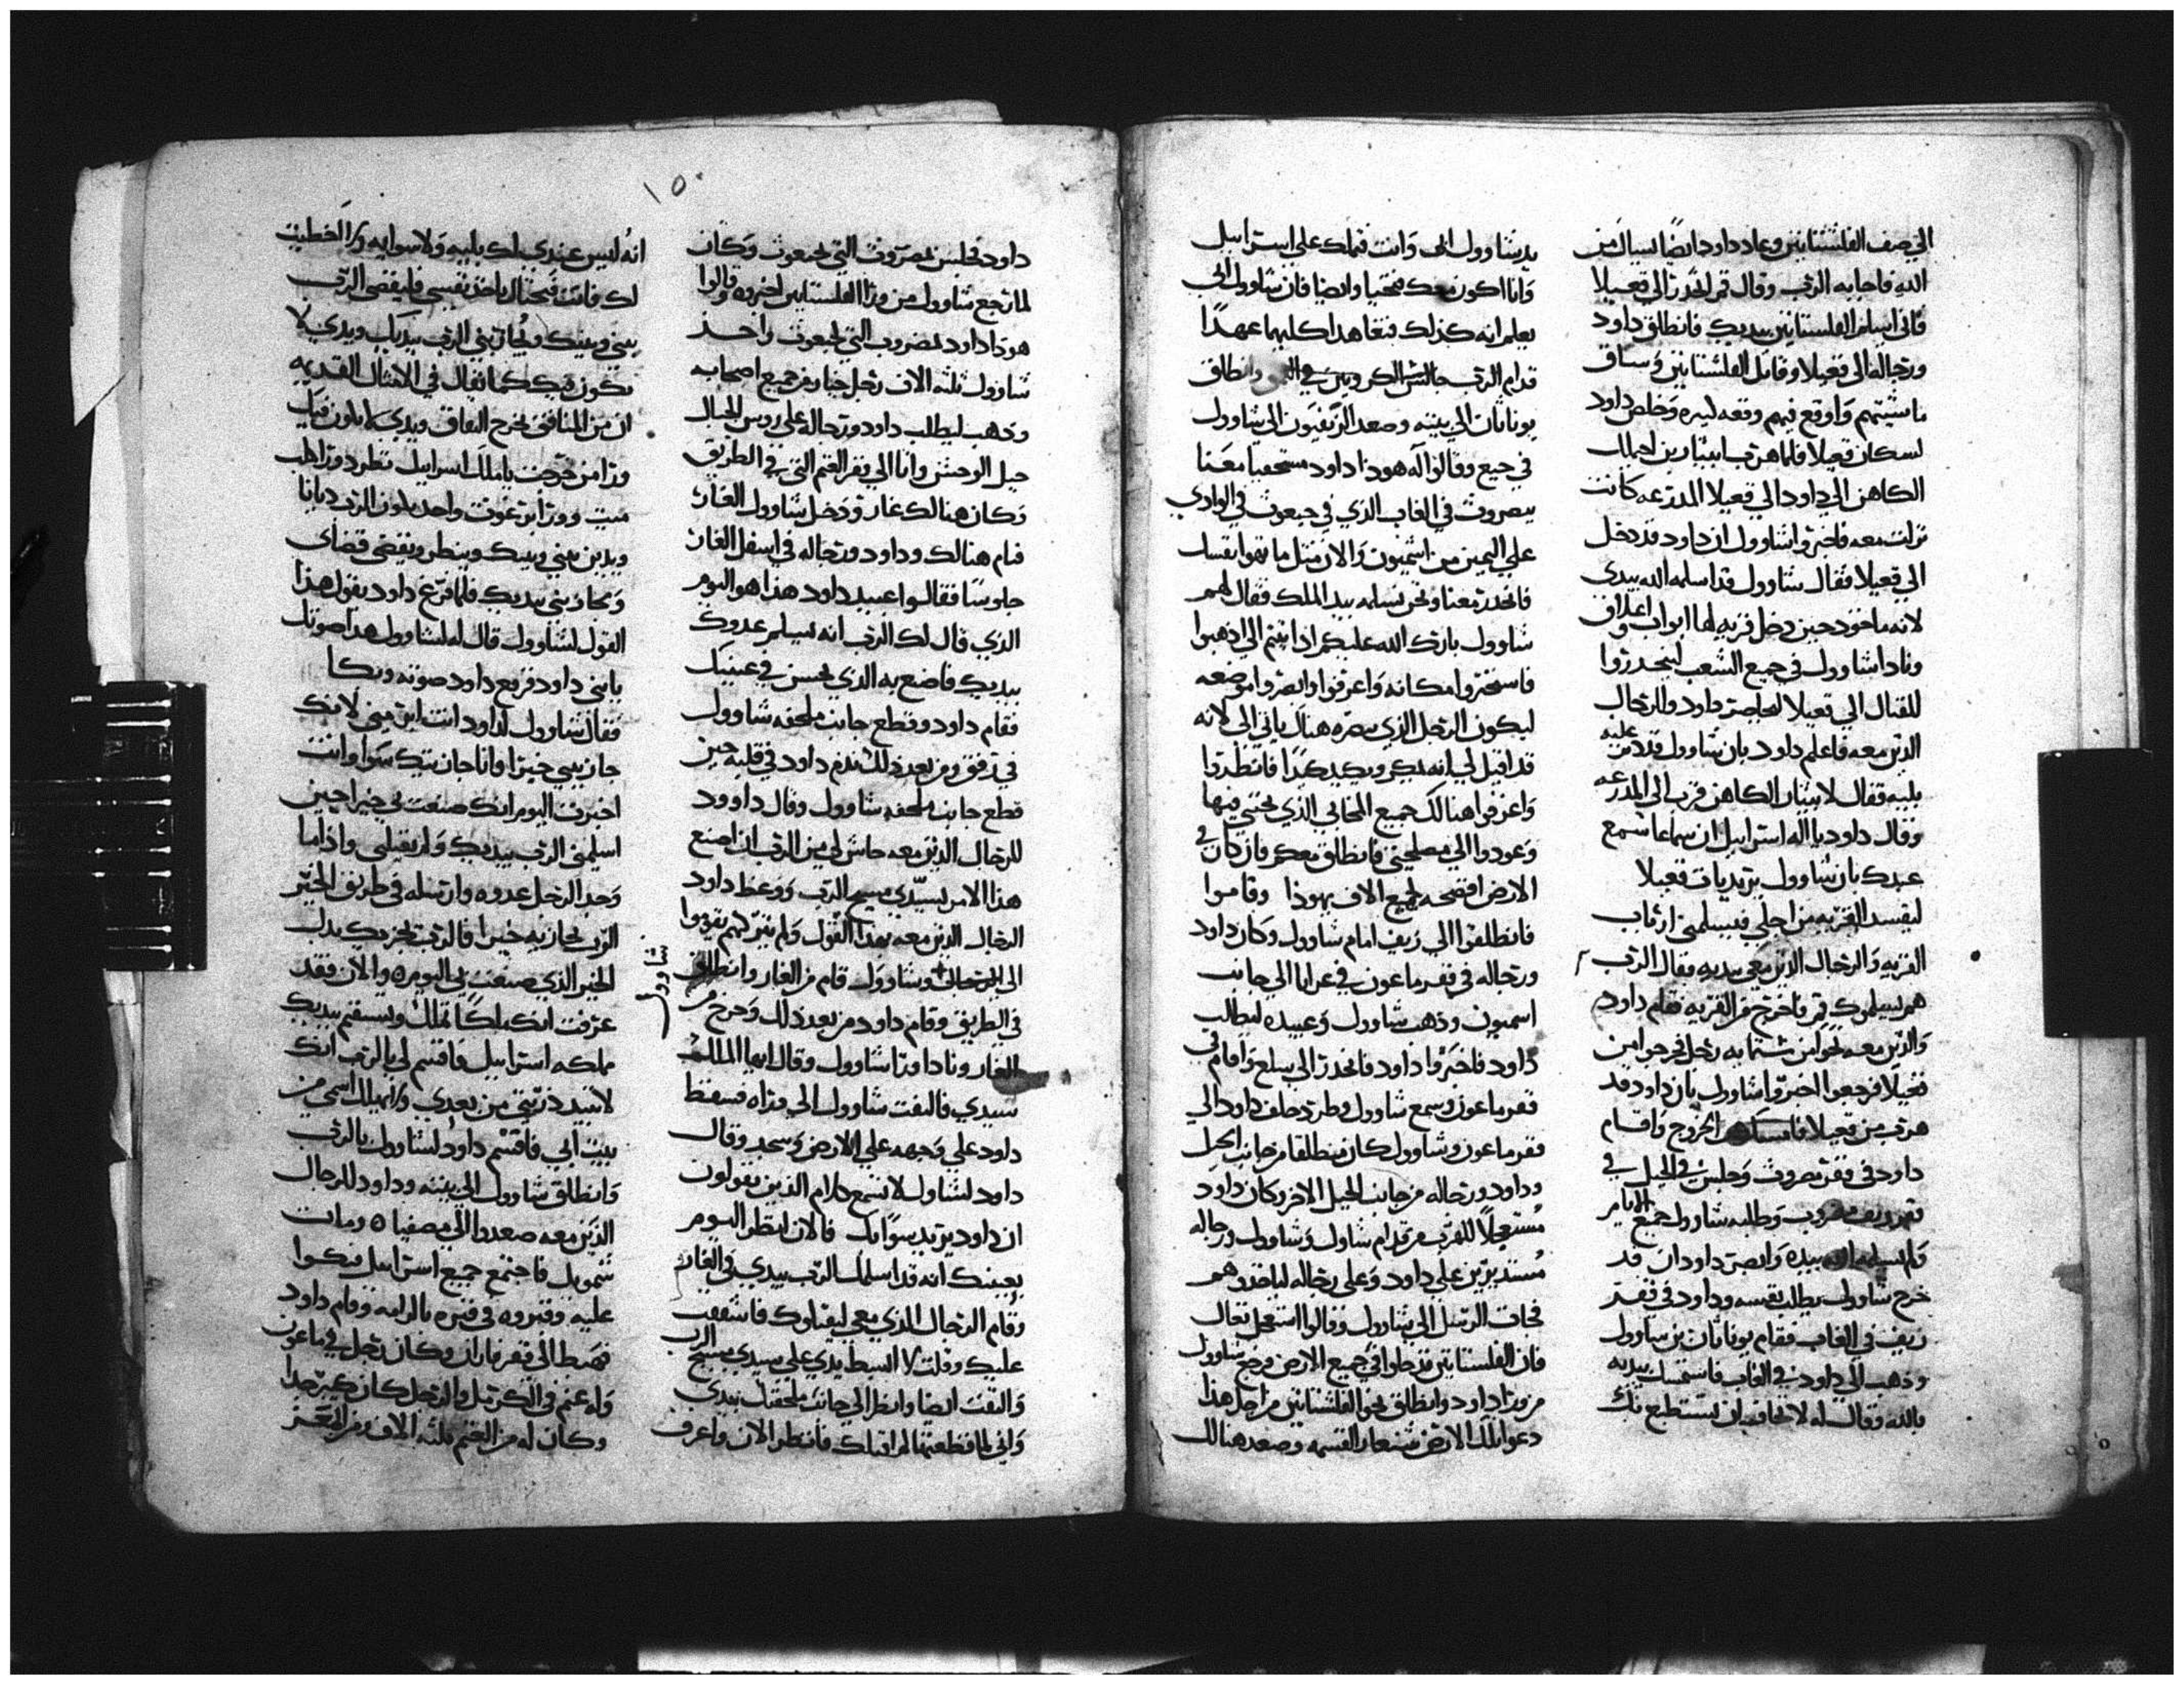 الي صف الفلسنتانيين وعاد داود ايضا يسال من
الله فاجابه الرب وقال قم انحدر الي قعيلا
فاني اسلم الفلسنتانيين بيديك فانطلق داود
ورجاله الي قعيلا وقاتل الفلسنتانيين وساق
ماشيتهم واوقع فيهم وقعه كبيره وخلص داود
لسكان قعيلا فلما هرب ابيثار بن احيملك
الكاهن الي داود الي قعيلا المدرعه كانت
نزلت معه فاخبروا شاوول ان داود قد دخل
الي قعيلا فقال شاوول قد اسلمه الله بيدي
لانه ماخوذ حين دخل قريه لها ابواب واغلاق
ونادا شاوول في جميع الشعب لينحدروا
للقتال الي قعيلا لمحاصرة داود والرجال
الذين معه فاعلم داود بان شاوول قد دمن عليه
بليه فقال لابيثار الكاهن قرب الي المدرعه
وقال داود يا اله اسراييل ان سماعا سمع
عبدك بان شاوول يريد ياتي قعيلا
ليفسد القريه من اجلي فيسلمني ارباب
القريه والرجال الذين معي بيديه فقال الرب
هم يسلموك قم فاخرج من القريه فقام داود
والذين معه نحوا من ستمايه رجل فخرجوا من
قعيلا فرجعوا اخبروا شاوول بان داود قد
هرب من قعيلا فامسك عن الخروج واقام
داود في قفر مصروث وجلس في الجبل في
قفر زيف وطلبه شاوول جميع الايام
ولم يسلمه الله بيده وابصر داود ان قد
خرج شاوول يطلب نفسه وداود في قفر
زيف في الغاب فقام يوناثان بن شاوول
وذهب الي داود في الغاب فاستمسك بيديه
بالله وقال له لا تخاف لن تستطيع تنك
يد شاوول ابي وانت تملك علي اسراييل
وانا اكون معك فتحيا وايضا فان شاوول ابي
يعلم انه كذلك فتعاهدا كليهما عهدا
قدام الرب وانطلق
يوناثان الي بيته وصعد الزيفيون الي شاوول
في جبع وقالوا له هوذا داود مستخفيا معنا
بمصروث في الغاب الذي في جبعوث في الوادي
علي اليمين من اشميون والان مثل ما تهوا نفسك
فانحدر معنا ونحن نسلمه بيد الملك فقال لهم
شاوول بارك الله عليكم اذ اتيتم الي اذهبوا
فاستخبروا مكانه واعرفوا وابصروا موضعه
ليكون الرجل الذي يبصره هناك ياتي الي لانه
قد قيل لي انه يمكر ويكيد كيدا فانظروا
واعرفوا هنالك جميع المخابي الذي يختبي فيها
وعودوا الي مصلحتي فانطلق معكم فان كان في
الارض افضحه لجميع الاف يهوذا وقاموا
فانطلقوا الي زيف امام شاوول وكان داود
ورجاله في قفر ماعون في عرابا الي جانب
اسميون وذهب شاوول وعبيده ليطلب
داود فاخبروا داود فانحدر الي سلع واقام في
قفر ماعون وسمع شاوول وطرد خلف داود الي
قفر ماعون وشاوول كان منطلقا من جانب الجبل
وداود ورجاله من جانب الجبل الاخر وكان داود
مستعجلا للهرب من قدام شاول وشاوول ورجاله
مستديرين علي داود وعلي رجاله لياخذوهم
فجات الرسل الي شاوول وقالوا استعجل تعال
فان الفلستانيين قد حلوا في جميع الارض فرجع شاوول
من ورا داود وانطلق نحو الفلسنتانيين من اجل هذا
دعوا تلك الارض شنعار القسمه وصعد هنالك
١٥٠
داود فجلس بمصروث التي لجبعوث وكان
لما رجع شاوول من ورا الفلستانيين اخبروه وقالوا
هوذا داود بمصروب التي لجبعوث واخذ
شاوول ثلثه الاف رجل جبار من جميع اصحابه
وذهب ليطلب داود ورجاله علي روس الجبال
جبل الوحش واتا الي قفر الغنم التي في الطريق
وكان هنالك غار ودخل شاوول الغار
فنام هنالك وداود ورجاله في اسفل الغار
جلوسا فقالوا عبيد داود هذا هو اليوم
الذي قال لك الرب انه يسلم عدوك
بيديك فاصنع به الذي يحسن في عينيك
فقام داود وقطع جانب ملحفه شاوول
في رفق ومن بعد ذلك ندم داود في قلبه حين
قطع جانب ملحفه شاوول وقال داوود
للرجال الذين معه حاش لي من الرب ان اصنع
هذا الامر بسيدي مسيح الرب ووعظ داود
الرجال الذين معه بهذا القول ولم يتركهم يقوموا
الي وشاوول قام من الغار وانطلق
شاوول
في الطريق وقام داود من بعد ذلك وخرج من
الغار ونادا ورا شاوول وقال ايها الملك
سيدي فالتفت شاوول الي وراه فسقط
داود علي وجهه علي الارض وسجد وقال
داود لشاول لا تسمع كلام الذين يقولون
ان داود يريد بك سوا فالان انظر اليوم
بعينك انه قد اسلمك الرب بيدي في الغار
وقام الرجال الذي معي ليقتلوك فاشفقت
عليك وقلت لا ابسط يدي علي سيدي مسيح الرب
والتفت ايضا وانظر الي جانب ملحفتك بيدي
واني لما قطعتها لم اقتلك فانظر الان واعرف
انه ليس عندي لك بليه ولا سوايه ولا اخطيت
لك فانت تحتال تاخذ نفسي فليقضي الرب
بيني وبينك ويجازيني الرب بيديك ويدي لا
تكون فيك كما يقال في الامثال القديمه
ان من المنافق يخرج النفاق ويدي لا تكون فيك
ورا من خرجت يا ملك اسراييل تطرد ورا كلب
ميت وورا برغوث واحد يكون الرب ديانا
ويدين بيني وبينك وينظر ويقضي قضاي
ويجازيني بيديك فلما فرغ داود يقول هذا
القول لشاوول قال له شاوول هذا صوتك
يابني داود فرفع داود صوته وبكا
فقال شاوول لداود انت ابر مني لانك
جازيتني خيرا وانا جازيتك سوا وانت
اخبرت اليوم انك صنعت بي خيرا حين
اسلمني الرب بيديك ولم تقتلني واذا ما
وجد الرجل عدوه وارسله في طريق الخير
الرب يجازيه خيرا فالرب يجزيك بدل
الخير الذي صنعت بي اليوم ه والان فقد
عرفت انك ملكا تملك وتستقيم بيديك
مملكه اسراييل فاقسم لي بالرب انك
لا تبيد ذريتي من بعدي ولا تهلك اسمي من
بيت ابي فاقسم داود لشاوول بالرب
وانطلق شاوول الي بيته وداود للرجال
الذين معه صعدوا الي مصفيا ه ومات
شمويل فاجتمع جميع اسراييل فبكوا
عليه وقبروه في قبره بالرامه وقام داود
فهبط الي قفر فاران وكان رجل في ماعون
وله غنم في الكرمل والرجل كان كبير جدا
وكان له من الغنم ثلثه الاف ومن المعز